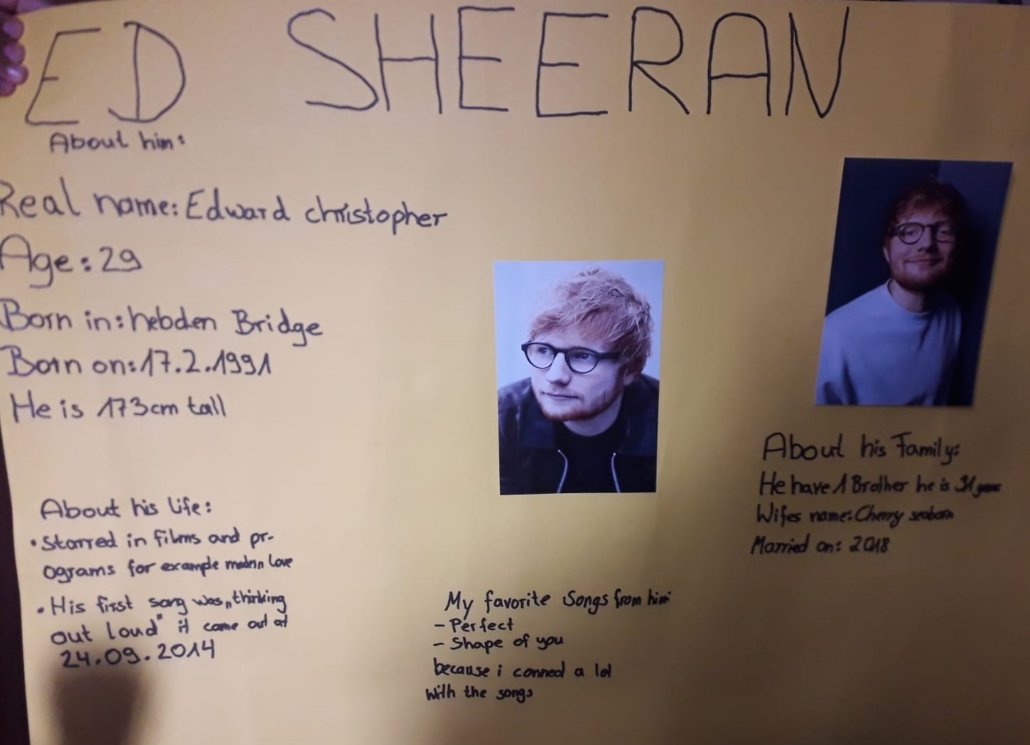 ED SHEERAN
About him:
Real name: Edward christopher
Age: 29
Born in: hebden Bridge
Born on: 17.2.1991
He is 173cm tall
About his life:
• Starred in films and pr-
ograms for example modern love
• His first song was „thinking
out loud" it came out at
24.09.2014
My favorite Songs from him:
- Perfect
- Shape of you
because i conned a lot
with the songs
About his Family:
He have 1 Brother he is 31 years
Wifes name: Cherry seaborn
Married on: 2018